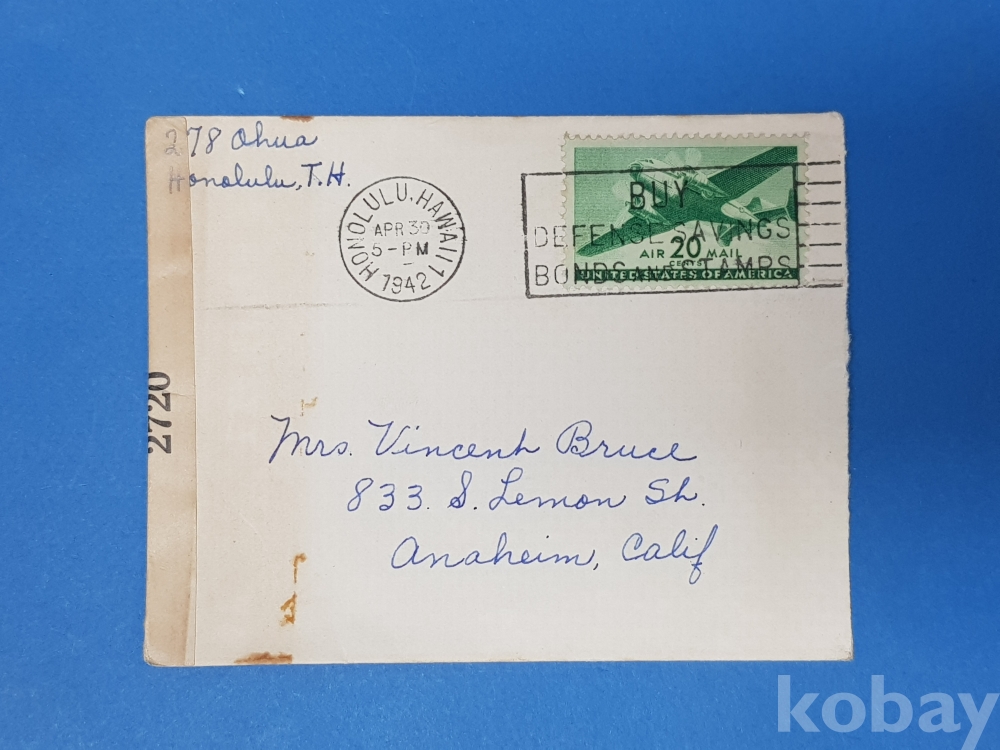 278 Ohua
Honolulu, T.H.
HONOLULU, HAWAII 1
APR 30
5-PM
1942
BUY
DEFENSE SAVINGS
BONDS AND STAMPS
AIR 20 MAIL
CENTS
UNITED STATES OF AMERICA
2720
Mrs. Vincent Bruce
833 S. Lemon St.
Anaheim, Calif
kobay